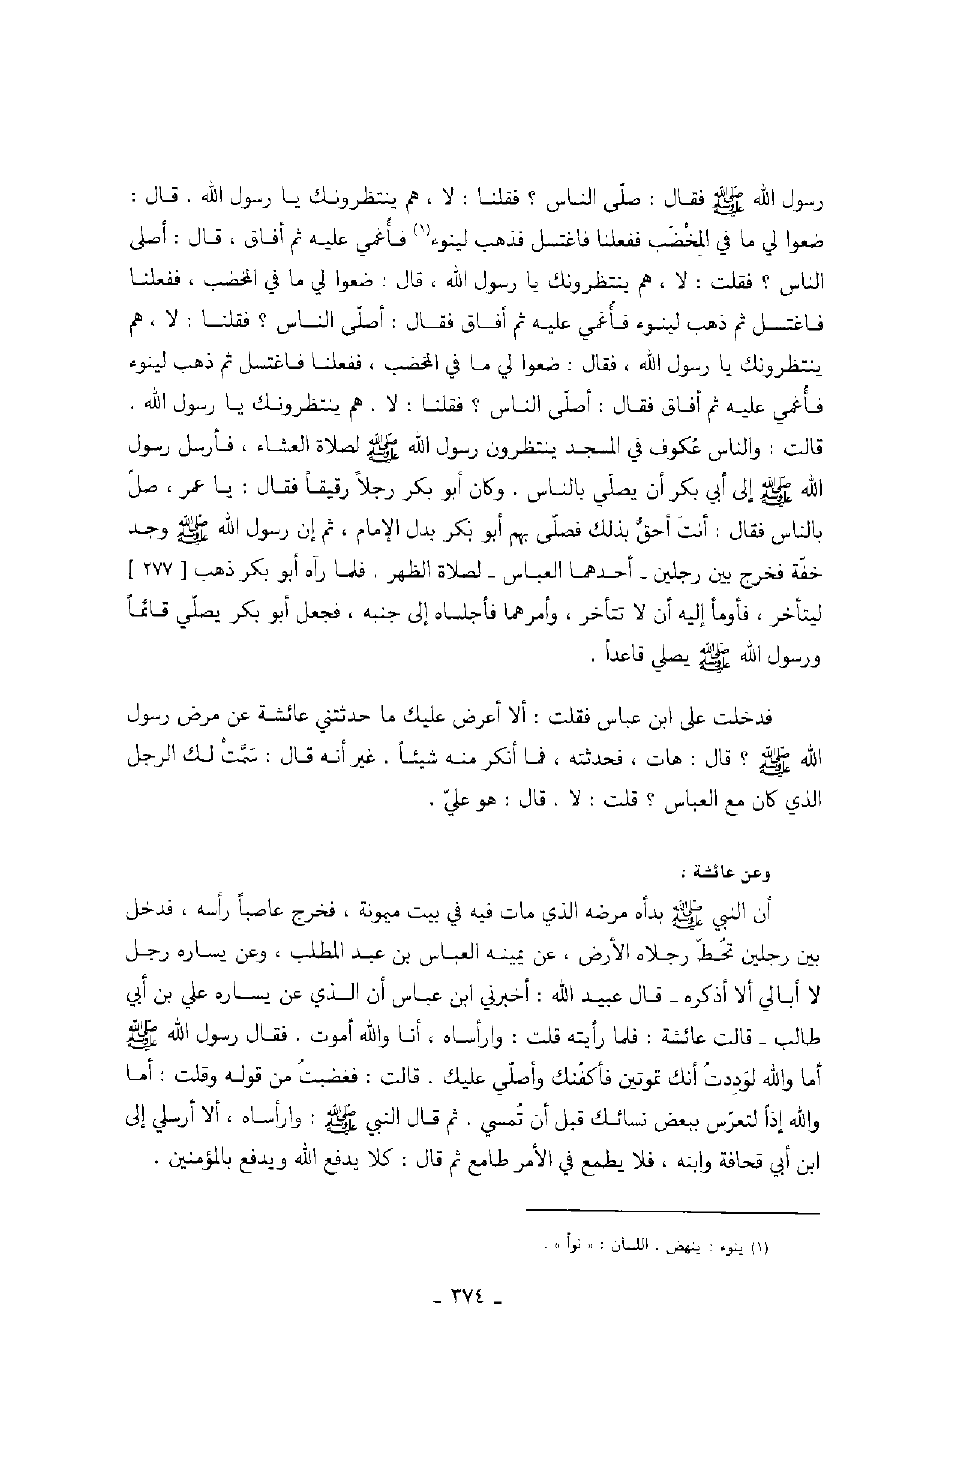 رسول الله ﷺ فقال : صلّى الناس ؟ فقلنا : لا ، هم ينتظرونك يا رسول الله . قال :
ضعوا لي ما في المِخْضَب ففعلنا فاغتسل فذهب لينوء(١) فأُغمي عليه ثم أفاق ، قال : أصلى
الناس ؟ فقلت : لا ، هم ينتظرونك يا رسول الله ، قال : ضعوا لي ما في المخضب ، ففعلنا
فاغتسل ثم ذهب لينوء فأُغمي عليه ثم أفاق فقال : أصلّى الناس ؟ فقلنا : لا ، هم
ينتظرونك يا رسول الله ، فقال : ضعوا لي ما في المخضب ، ففعلنا فاغتسل ثم ذهب لينوء
فأُغمي عليه ثم أفاق فقال : أصلّى الناس ؟ فقلنا : لا . هم ينتظرونك يا رسول الله .
قالت : والناس عُكوف في المسجد ينتظرون رسول الله ﷺ لصلاة العشاء ، فأرسل رسول
الله ﷺ إلى أبي بكر أن يصلي بالناس . وكان أبو بكر رجلاً رقيقاً فقال : يا عمر ، صلّ
بالناس فقال : أنتَ أحقُّ بذلك فصلّى بهم أبو بكر بدل الإمام ، ثم إن رسول الله ﷺ وجد
خفّة فخرج بين رجلين ـ أحدهما العباس ـ لصلاة الظهر . فلما رآه أبو بكر ذهب [ ٢٧٧ ]
ليتأخر ، فأومأ إليه أن لا تتأخر ، وأمرهما فأجلساه إلى جنبه ، فجعل أبو بكر يصلّي قائماً
ورسول الله ﷺ يصلي قاعداً .
فدخلت على ابن عباس فقلت : ألا أعرض عليك ما حدثتني عائشة عن مرض رسول
الله ﷺ ؟ قال : هات ، فحدثته ، فما أنكر منه شيئاً . غير أنه قال : سَمَّتْ لك الرجل
الذي كان مع العباس ؟ قلت : لا . قال : هو عليّ .
وعن عائشة :
أن النبي ﷺ بدأه مرضه الذي مات فيه في بيت ميمونة ، فخرج عاصباً رأسه ، فدخل
بين رجلين تخُطّ رجلاه الأرض ، عن يمينه العباس بن عبد المطلب ، وعن يساره رجل
لا أبالي ألا أذكره ـ قال عبيد الله : أخبرني ابن عباس أن الذي عن يساره علي بن أبي
طالب ـ قالت عائشة : فلما رأيته قلت : وارأساه ، أنا والله أموت . فقال رسول الله ﷺ
أما والله لوَدِدتُ أنك تموتين فأكفّنك وأصلّي عليك . قالت : فغضبتُ من قوله وقلت : أما
والله إذاً لتعرّس ببعض نسائك قبل أن تُمسي . ثم قال النبي ﷺ : وارأساه ، ألا أرسلي إلى
ابن أبي قحافة وابنه ، فلا يطمع في الأمر طامع ثم قال : كلا يدفع الله ويدفع بالمؤمنين .
(١) ينوء : ينهض . اللسان : « نوأ » .
ـ ٣٧٤ ـ